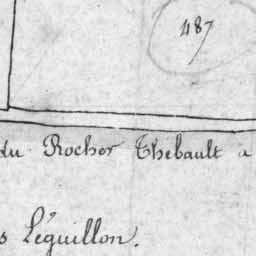 487
du Rocher Thébault a
s Léguillon.